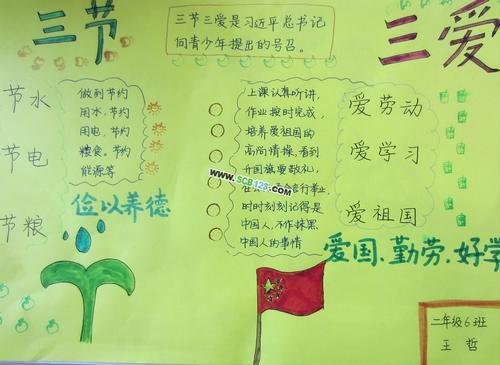 三节
三节三爱是习近平总书记
向青少年提出的号召。
三爱
节水
节电
节粮
做到节约
用水、节约
用电、节约
粮食、节约
能源等
上课认真听讲,
作业按时完成,
培养爱祖国的
高尚情操,看到
升国旗要敬礼,
行业,
时时刻刻记得是
中国人,不作抹黑
中国人的事情
www.SCB128.com
爱劳动
爱学习
爱祖国
俭以养德
爱国、勤劳、好学
二年级6班
王哲